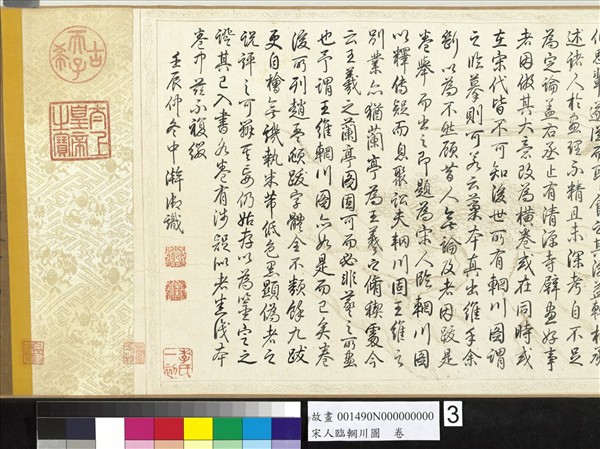 述諸人於畫理不精且未深考自不足
為定論蓋右丞止有清源寺壁畫好事
者因倣其大意改為橫卷或在同時或
在宋代皆不可知後世所有輞川圖謂
之臨摹則可若云藁本真出維手余
斷以為不然顧昔人無論及者因跋是
卷舉而出之即題為宋人臨輞川圖
以釋傳疑而息聚訟夫輞川固王維之
別業亦猶蘭亭為王羲之脩禊處今
云王羲之蘭亭圖固可而必非羲之所畫
也予謂王維輞川圖亦如是而已矣卷
後所列趙孟頫跋字體全不類餘九跋
更自檜無譏執朱帶低色黑顯偽者之
說評之可仍姑存以為鑒定之
證其已入書各卷有涉疑似者悉從本
卷中茲不複綴
壬辰仲冬中澣御識
古稀天子
太上皇帝之寶
故畫 001490N000000000
宋人臨輞川圖 卷
3